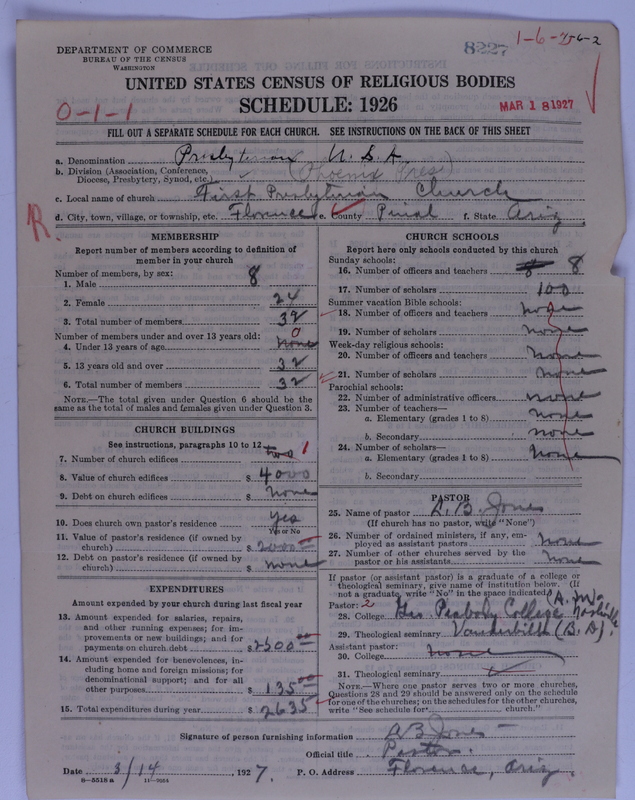 8227
1-6-456-2
DEPARTMENT OF COMMERCE
BUREAU OF THE CENSUS
WASHINGTON
UNITED STATES CENSUS OF RELIGIOUS BODIES
SCHEDULE: 1926
MAR 18 1927
0-1-1
FILL OUT A SEPARATE SCHEDULE FOR EACH CHURCH. SEE INSTRUCTIONS ON THE BACK OF THIS SHEET
a. Denomination Presbyterian U.S.A.
b. Division (Association, Conference,
Diocese, Presbytery, Synod, etc.) (Phoenix Pres)
c. Local name of church First Presbyterian Church
d. City, town, village, or township, etc. Florence e. County Pinal f. State Ariz
R.
MEMBERSHIP
Report number of members according to definition of
member in your church
Number of members, by sex:
1. Male 8
2. Female 24
3. Total number of members 32
Number of members under and over 13 years old: 0
4. Under 13 years of age none
5. 13 years old and over 32
6. Total number of members 32
NOTE.—The total given under Question 6 should be
same as the total of males and females given under Question 3.
CHURCH BUILDINGS
See instructions, paragraphs 10 to 12
7. Number of church edifices two 1
8. Value of church edifices $ 4000
9. Debt on church edifices $ none
10. Does church own pastor's residence yes
Yes or No
11. Value of pastor's residence (if owned by
church) $ 2000.00
12. Debt on pastor's residence (if owned by
church) $ none
EXPENDITURES
Amount expended by your church during last fiscal year
13. Amount expended for salaries, repairs,
and other running expenses; for im-
provements or new buildings; and for
payments on church debt $ 2500.00
14. Amount expended for benevolences, in-
cluding home and foreign missions; for
denominational support; and for all
other purposes $ 135.00
15. Total expenditures during year $ 2635
CHURCH SCHOOLS
Report here only schools conducted by this church
Sunday schools:
16. Number of officers and teachers 8 8
17. Number of scholars 100
Summer vacation Bible schools:
18. Number of officers and teachers none
19. Number of scholars none
Week-day religious schools:
20. Number of officers and teachers none
21. Number of scholars none
Parochial schools:
22. Number of administrative officers none
23. Number of teachers—
a. Elementary (grades 1 to 8) none
b. Secondary none
24. Number of scholars—
a. Elementary (grades 1 to 8) none
b. Secondary
PASTOR
25. Name of pastor A. B. Jones
(If church has no pastor, write "None")
26. Number of ordained ministers, if any, em-
ployed as assistant pastors none
27. Number of other churches served by the
pastor or his assistants none
If pastor (or assistant pastor) is a graduate of a college or
theological seminary, give name of institution below. (If
not a graduate, write "No" in the space indicated)
Pastor: 2
28. College Geo Peabody College Nashville
29. Theological seminary Vanderbilt (B.D.)
Assistant pastor:
30. College none
31. Theological seminary
NOTE.—Where one pastor serves two or more churches,
Questions 28 and 29 should be answered only on the schedule
for one of the churches; on the schedules for the other churches,
write "See schedule for church."
Signature of person furnishing information A B Jones
Official title Pastor.
Date 3/14, 1927. P. O. Address Florence, Ariz
8-5518a 11-9024